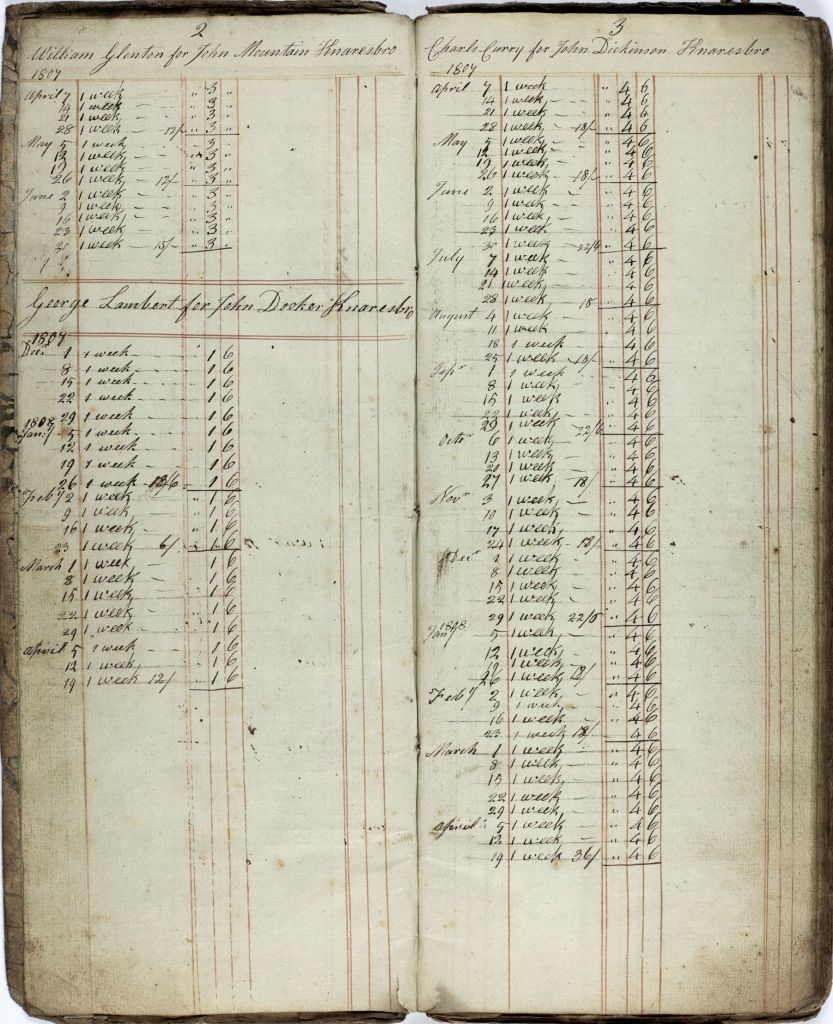 2
William Glenton for John Mountain Knaresbro
1807
April 7 1 week — " 3 "
14 1 week — " 3 "
21 1 week — " 3 "
28 1 week — 12/- " 3 "
May 5 1 week — " 3 "
12 1 week — " 3 "
19 1 week — " 3 "
26 1 week 12/- " 3 "
June 2 1 week — " 3 "
9 1 week — " 3 "
16 1 week — " 3 "
23 1 week — " 3 "
30 1 week — 15/- " 3 "
George Lambert for John Docker Knaresbro
1807
Decr 1 1 week — 1 6
8 1 week — 1 6
15 1 week — 1 6
22 1 week — 1 6
29 1 week — 1 6
1808
Jany 5 1 week — 1 6
12 1 week — 1 6
19 1 week — 1 6
26 1 week — 13/6 1 6
Feby 2 1 week " 1 6
9 1 week — " 1 6
16 1 week — " 1 6
23 1 week 6/- " 1 6
March 1 1 week — 1 6
8 1 week — 1 6
15 1 week — 1 6
22 1 week — 1 6
29 1 week — 1 6
April 5 1 week — 1 6
12 1 week — 1 6
19 1 week 12/ 1 6
3
Charls Curry for John Dickinson Knaresbro
1807
April 7 1 week — " 4 6
14 1 week — " 4 6
21 1 week — " 4 6
28 1 week — 18/- " 4 6
May 5 1 week — " 4 6
12 1 week — " 4 6
19 1 week — " 4 6
26 1 week — 18/- " 4 6
June 2 1 week — " 4 6
9 1 week — " 4 6
16 1 week — " 4 6
23 1 week — " 4 6
30 1 week — 22/6 " 4 6
July 7 1 week — " 4 6
14 1 week — " 4 6
21 1 week — " 4 6
28 1 week 18 " 4 6
August 4 1 week — " 4 6
11 1 week " 4 6
18 1 week — " 4 6
25 1 week — 18/- " 4 6
Sepr 1 1 week — " 4 6
8 1 week — " 4 6
15 1 week — " 4 6
22 1 week — " 4 6
29 1 week — 22/6 " 4 6
Octr 6 1 week — " 4 6
13 1 week — " 4 6
20 1 week — " 4 6
27 1 week — 18/ " 4 6
Novr 3 1 week — " 4 6
10 1 week — " 4 6
17 1 week — " 4 6
24 1 week — 18/- " 4 6
Decr 1 1 week — " 4 6
8 1 week — " 4 6
15 1 week — " 4 6
22 1 week — " 4 6
29 1 week 22/6 " 4 6
1808
Jany 5 1 week — " 4 6
12 1 week — " 4 6
19 1 week — " 4 6
26 1 week 18/ " 4 6
Feby 2 1 week — " 4 6
9 1 week — " 4 6
16 1 week — " 4 6
23 1 week 18/ " 4 6
March 1 1 week — " 4 6
8 1 week — " 4 6
15 1 week — " 4 6
22 1 week — " 4 6
29 1 week — " 4 6
April 5 1 week — " 4 6
12 1 week — " 4 6
19 1 week 36/ " 4 6